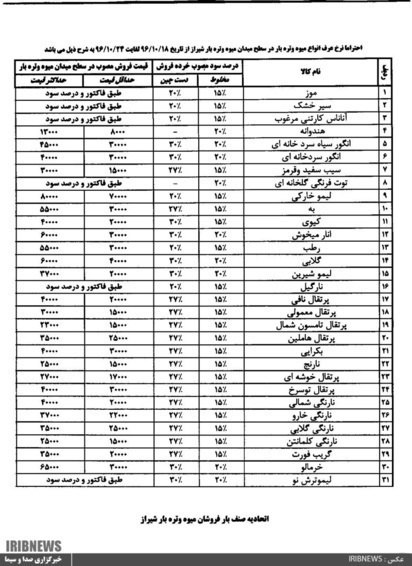 احتراما نرخ عرف انواع میوه وتره بار در سطح میدان میوه وتره بار شیراز از تاریخ ۹۶/۱۰/۱۸ لغایت ۹۶/۱۰/۲۴ به شرح ذیل می باشد
ردیف نام کالا درصد سود مصوب خرده فروش قیمت فروش مصوب در سطح میدان میوه وتره بار
مخلوط دست چین حداقل قیمت حداکثر قیمت
۱ موز ۱۵٪ ۲۰٪ طبق فاکتور و درصد سود
۲ سیر خشک ۱۵٪ ۲۰٪ طبق فاکتور و درصد سود
۳ آناناس کارتنی مرغوب ۱۵٪ ۲۰٪ طبق فاکتور و درصد سود
۴ هندوانه ۲۰٪ – ۸۰۰۰ ۱۳۰۰۰
۵ انگور سیاه سرد خانه ای ۱۵٪ ۳۰٪ ۳۰۰۰۰ ۴۵۰۰۰
۶ انگور سردخانه ای ۱۵٪ ۳۰٪ ۳۰۰۰۰ ۴۰۰۰۰
۷ سیب سفید وقرمز ۱۵٪ ۲۷٪ ۱۵۰۰۰ ۳۰۰۰۰
۸ توت فرنگی گلخانه ای ۲۰٪ – طبق فاکتور و درصد سود
۹ لیمو خارکی ۱۵٪ ۲۰٪ ۷۰۰۰۰ ۸۰۰۰۰
۱۰ به ۱۵٪ ۲۷٪ ۳۰۰۰۰ ۵۵۰۰۰
۱۱ کیوی ۱۵٪ ۳۰٪ ۲۰۰۰۰ ۴۰۰۰۰
۱۲ انار میخوش ۱۵٪ ۳۰٪ ۳۰۰۰۰ ۶۰۰۰۰
۱۳ رطب ۱۵٪ ۲۰٪ ۳۰۰۰۰ ۵۵۰۰۰
۱۴ گلابی ۲۰٪ ۳۰٪ ۴۰۰۰۰ ۶۰۰۰۰
۱۵ لیمو شیرین ۲۰٪ ۳۰٪ ۲۰۰۰۰ ۳۷۰۰۰
۱۶ نارگیل ۱۵٪ ۲۰٪ طبق فاکتور و درصد سود
۱۷ پرتقال نافی ۱۵٪ ۲۷٪ ۲۰۰۰۰ ۴۰۰۰۰
۱۸ پرتقال معمولی ۱۵٪ ۲۷٪ ۱۵۰۰۰ ۳۰۰۰۰
۱۹ پرتقال تامسون شمال ۱۵٪ ۲۷٪ ۱۵۰۰۰ ۲۳۰۰۰
۲۰ پرتقال هاملین ۱۵٪ ۲۷٪ ۲۵۰۰۰ ۳۵۰۰۰
۲۱ بکرایی ۱۵٪ ۲۷٪ ۳۰۰۰۰ ۴۰۰۰۰
۲۲ نارنج ۱۵٪ ۲۷٪ ۱۵۰۰۰ ۲۵۰۰۰
۲۳ پرتقال خوشه ای ۱۵٪ ۲۷٪ ۱۷۰۰۰ ۲۷۰۰۰
۲۴ پرتقال توسرخ ۱۵٪ ۲۷٪ ۳۰۰۰۰ ۴۰۰۰۰
۲۵ نارنگی شمالی ۱۵٪ ۲۷٪ ۲۰۰۰۰ ۴۰۰۰۰
۲۶ نارنگی خارو ۱۵٪ ۲۷٪ ۲۲۰۰۰ ۳۷۰۰۰
۲۷ نارنگی گلابی ۱۵٪ ۲۷٪ ۲۵۰۰۰ ۳۵۰۰۰
۲۸ نارنگی کلمانتن ۱۵٪ ۲۷٪ ۱۵۰۰۰ ۲۵۰۰۰
۲۹ گریپ فورت ۱۵٪ ۲۷٪ ۲۰۰۰۰ ۳۵۰۰۰
۳۰ خرمالو ۲۰٪ ۳۰٪ ۳۰۰۰۰ ۶۵۰۰۰
۳۱ لیموترش نو ۲۰٪ ۳۰٪ طبق فاکتور و درصد سود
اتحادیه صنف بار فروشان میوه وتره بار شیراز
IRIBNEWS
خبرگزاری صدا و سیما
عکس : IRIBNEWS